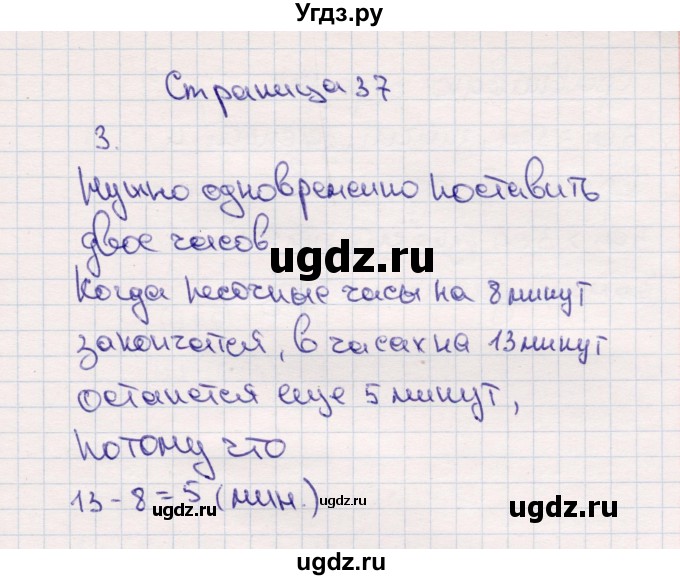 Угдз.ру
Страница 37
3.
Нужно одновременно поставить
двое часов
ugdz.ru
Когда песочные часы на 8 минут
закончатся, в часах на 13 минут
останется еще 5 минут,
потому что
13 - 8 = 5 (мин.)
ugdz.ru
ugdz.ru
ugdz.ru
ugdz.ru